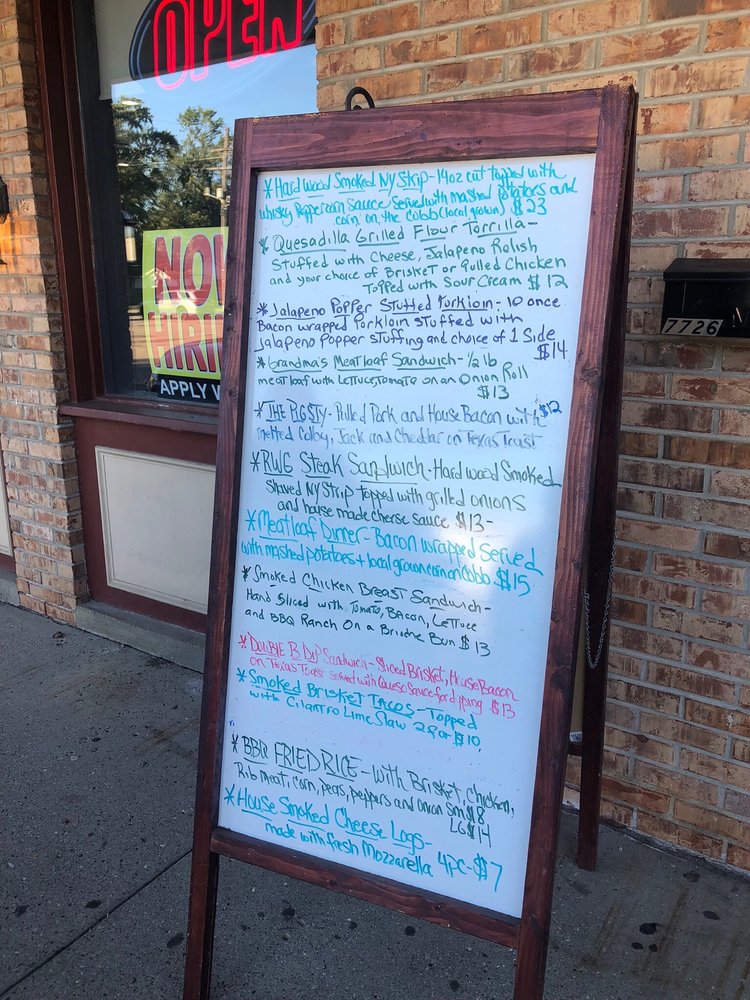 OPEN
NOW
HIRIN
APPLY
7726
* Hard Wood Smoked NY Strip - 14oz cut topped with
whisky Peppercorn sauce served with mashed potatoes and
corn on the cobb (local grown) $23
* Quesadilla Grilled Flour Torrilla -
Stuffed with Cheese, Jalapeno Relish
and your choice of Brisket or Pulled Chicken
Topped with Sour Cream $12
* Jalapeno Popper Stuffed Porkloin - 10 once
Bacon wrapped Porkloin stuffed with
Jalapeno Popper stuffing and choice of 1 Side
$14
* Grandma's Meatloaf Sandwich - 1/2 lb
meatloaf with Lettuce, Tomato on an Onion Roll
$13
* THE PIGSTY - Pulled Pork and House Bacon with $12
melted Colby, Jack and Cheddar on Texas Toast
* RWG Steak Sandwich - Hard wood Smoked
Shaved NY Strip topped with grilled onions
and house made cheese sauce $13 -
* Meatloaf Dinner - Bacon wrapped served
with mashed potatoes + local grown corn on Cobb $15
* Smoked Chicken Breast Sandwich -
Hand Sliced with Tomato, Bacon, Lettuce
and BBQ Ranch On a Brioche Bun $13
* Double B Dip Sandwich - Sliced Brisket, House Bacon
on Texas Toast served with Queso Sauce for diping $13
* Smoked Brisket Tacos - Topped
with Cilantro Lime Slaw 2 for $10
* BBQ FRIED RICE - with Brisket, Chicken,
Rib meat, corn, peas, peppers and onion Sm $8
LG $14
* House Smoked Cheese Logs -
made with fresh Mozzarella 4pc - $7